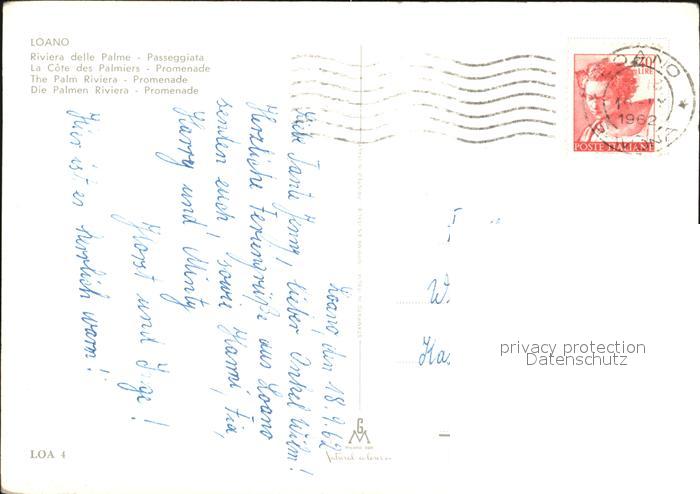 LOANO
Riviera delle Palme - Passeggiata
La Côte des Palmiers - Promenade
The Palm Riviera - Promenade
Die Palmen Riviera - Promenade
LOANO
1962
40
LIRE
POSTE ITALIANE
Loano, den 18.9.62
Liebe Tante Jenny, lieber Onkel Wilm!
Herzliche Feriengrüße aus Loano
senden euch! sowie Hanni, Fia,
Harry und Minty
Horst und Inge!
Hier ist es herrlich warm!
W.
Ha.
privacy protection
Datenschutz
GM
LOA 4